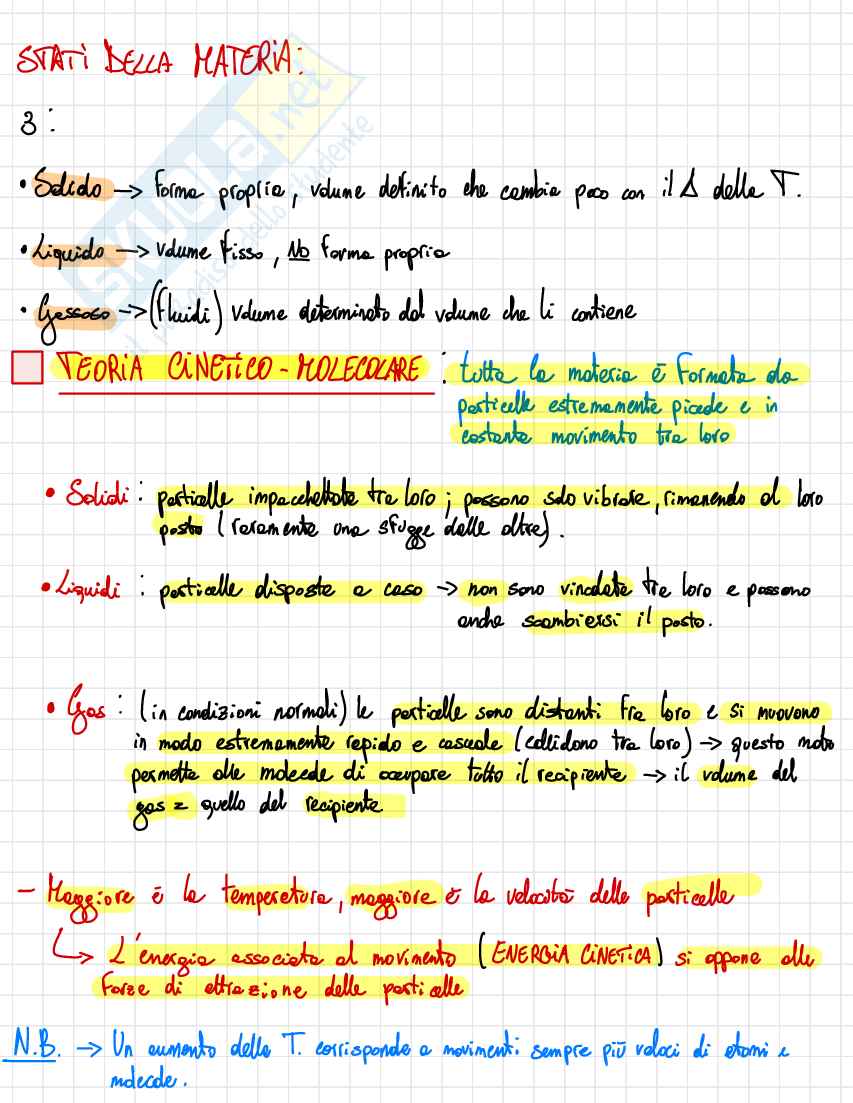 STATI DELLA MATERIA:
3:
• Solido -> forma propria, volume definito che cambia poco con il Δ della T.
• Liquido -> volume fisso, NO forma propria
• Gassoso -> (fluidi) volume determinato dal volume che li contiene
TEORIA CINETICO-MOLECOLARE : tutta la materia è formata da
particelle estremamente piccole e in
costante movimento tra loro
• Solidi : particelle impacchettate tra loro ; possono solo vibrare, rimanendo al loro
posto (raramente una sfugge dalle altre).
• Liquidi : particelle disposte a caso -> non sono vincolate tra loro e possono
anche scambiarsi il posto.
• Gas : (in condizioni normali) le particelle sono distanti fra loro e si muovono
in modo estremamente rapido e casuale (collidono tra loro) -> questo moto
permette alle molecole di occupare tutto il recipiente -> il volume del
gas = quello del recipiente
- Maggiore è la temperatura, maggiore è la velocità delle particelle
↳ L'energia associata al movimento (ENERGIA CINETICA) si oppone alle
forze di attrazione delle particelle
N.B. -> Un aumento della T. corrisponde a movimenti sempre più veloci di atomi e
molecole.
SKUOLA.net
il paradiso dello studente